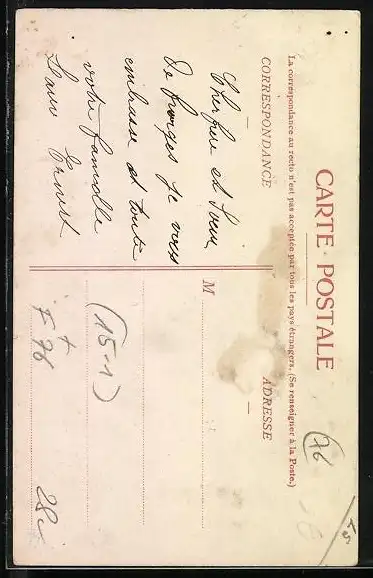 CARTE POSTALE
La correspondance au recto n'est pas acceptée par tous les pays étrangers. (Se renseigner à la Poste.)
CORRESPONDANCE
ADRESSE
Cher frère et Soeur
De Georges je vous
embrasse et toute
votre famille
Ernest
M
(15-1)
+
F 76
28c
(76